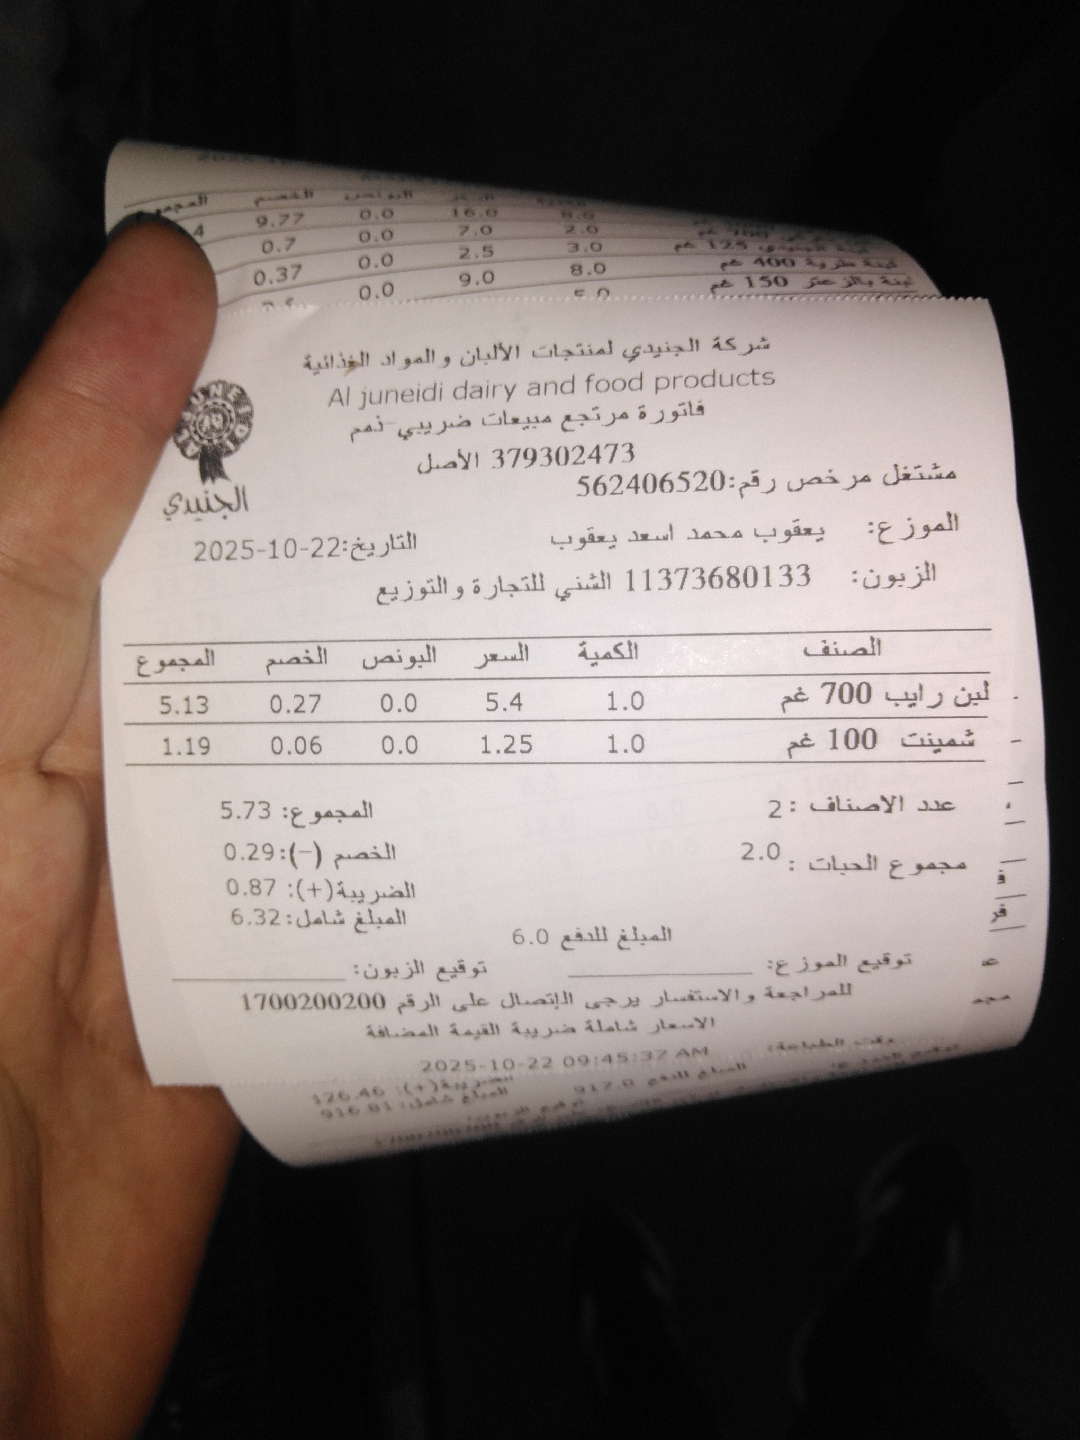 المجموع الخصم البونص
4 9.77 0.0 16.0 8.0
0.7 0.0 7.0 2.0 125 غم
0.37 0.0 2.5 3.0 لبنة طرية 400 غم
0.0 9.0 8.0 لبنة بالزعتر 150 غم
شركة الجنيدي لمنتجات الألبان والمواد الغذائية
Al juneidi dairy and food products
فاتورة مرتجع مبيعات ضريبي-ذمم
379302473 الأصل
مشتغل مرخص رقم:562406520
الجنيدي
الموزع: يعقوب محمد اسعد يعقوب التاريخ:2025-10-22
الزبون: 11373680133 الشني للتجارة والتوزيع
الصنف الكمية السعر البونص الخصم المجموع
لبن رايب 700 غم 1.0 5.4 0.0 0.27 5.13
شمينت 100 غم 1.0 1.25 0.0 0.06 1.19
عدد الاصناف : 2 المجموع: 5.73
مجموع الحبات : 2.0 الخصم (-):0.29
الضريبة(+): 0.87
المبلغ شامل: 6.32
المبلغ للدفع 6.0
توقيع الموزع: توقيع الزبون:
للمراجعة والاستفسار يرجى الإتصال على الرقم 1700200200
الاسعار شاملة ضريبة القيمة المضافة
وقت الطباعة: 2025-10-22 09:45:37 AM
الضريبة(+): 126.46
المبلغ للدفع 917.0 المبلغ شامل: 916.81
توقيع الزبون: